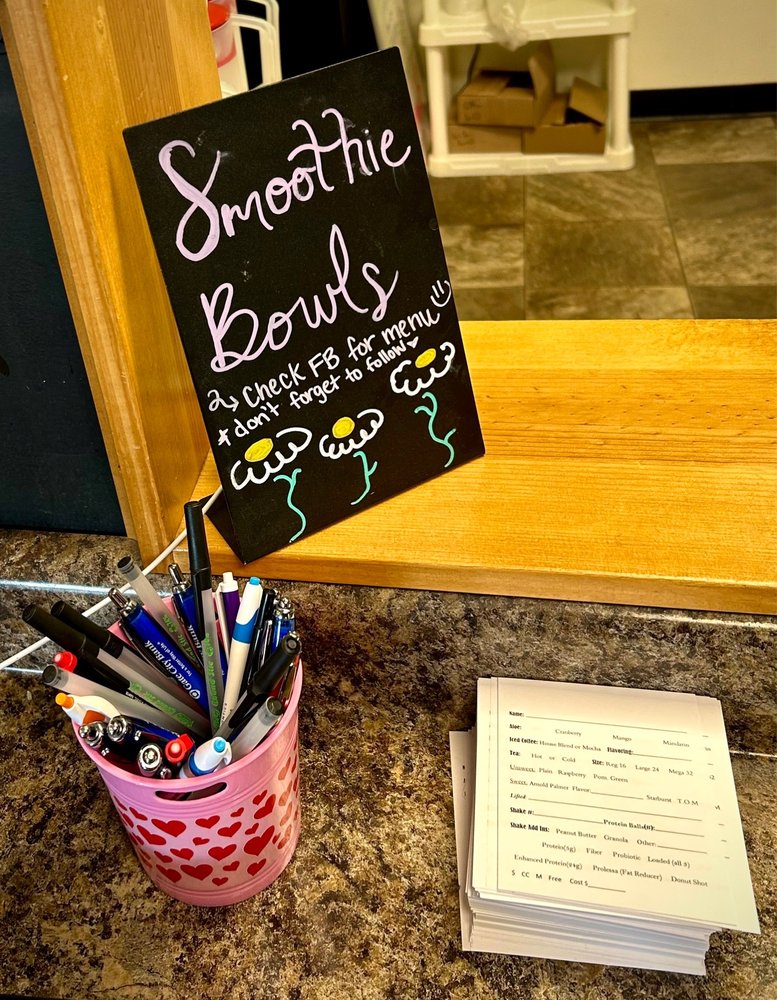 Smoothie
Bowls
check FB for menu
* don't forget to follow
Gate City Bank
Name:
Aloe: Cranberry Mango Mandarin
Iced Coffee: House Blend or Mocha Flavoring:
Tea: Hot or Cold Size: Reg 16 Large 24 Mega 32
Unsweet, Plain Raspberry Pom. Green
Sweet, Arnold Palmer Flavor: Starburst T.O.M
Lifted
Shake #: Protein Balls(#):
Shake Add Ins: Peanut Butter Granola Other:
Protein(5g) Fiber Probiotic Loaded (all 3)
Enhanced Protein(24g) Prolessa (Fat Reducer) Donut Shot
$ CC M Free Cost $